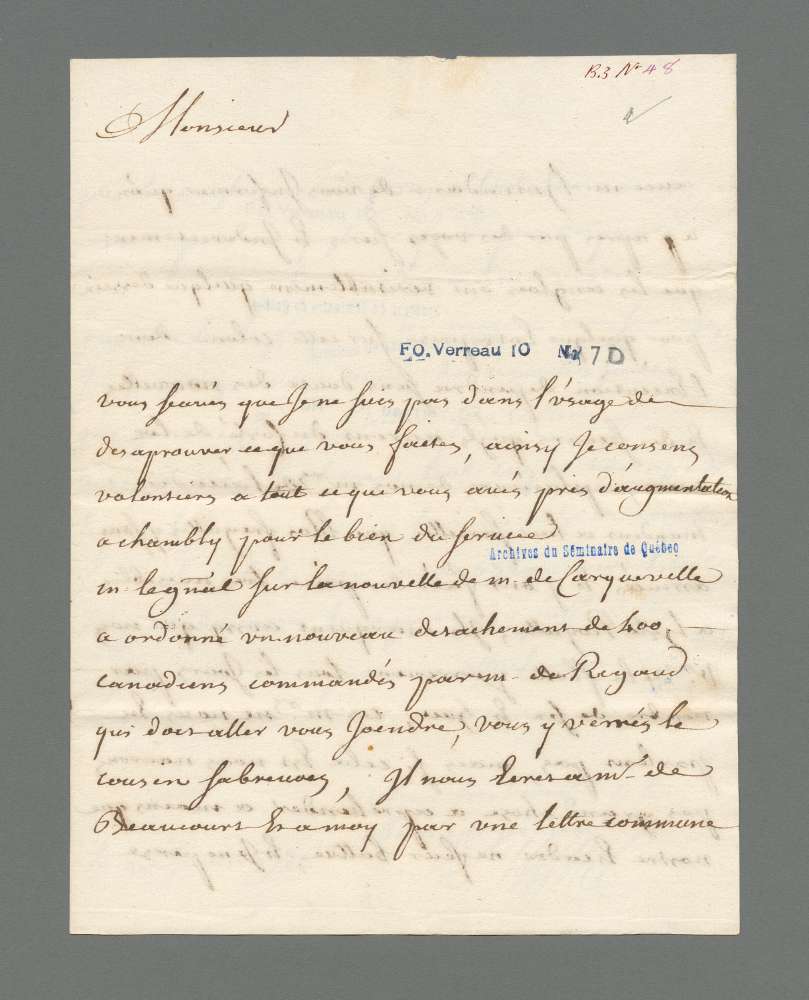 B.3 No 48
Monsieur
FO. Verreau 10 No 7D
vous scavés que Je ne suis pas dans l'usage de
desaprouver ce que vous faites, ainsy Je consens
volontiers a tout ce que vous avés pris d'augmentation
a chambly pour le bien du service
Archives du Séminaire de Québec
m. le gñal sur la nouvelle de m. de Carqueville
a ordonné vn nouveau detachement de 400
canadiens commandés par m. de Rigaud
qui doit aller vous Joindre, vous y verrés le
cousin sabrevois, Il nous Ecrit a mr. de
Beaucourt Et a moy par vne lettre commune